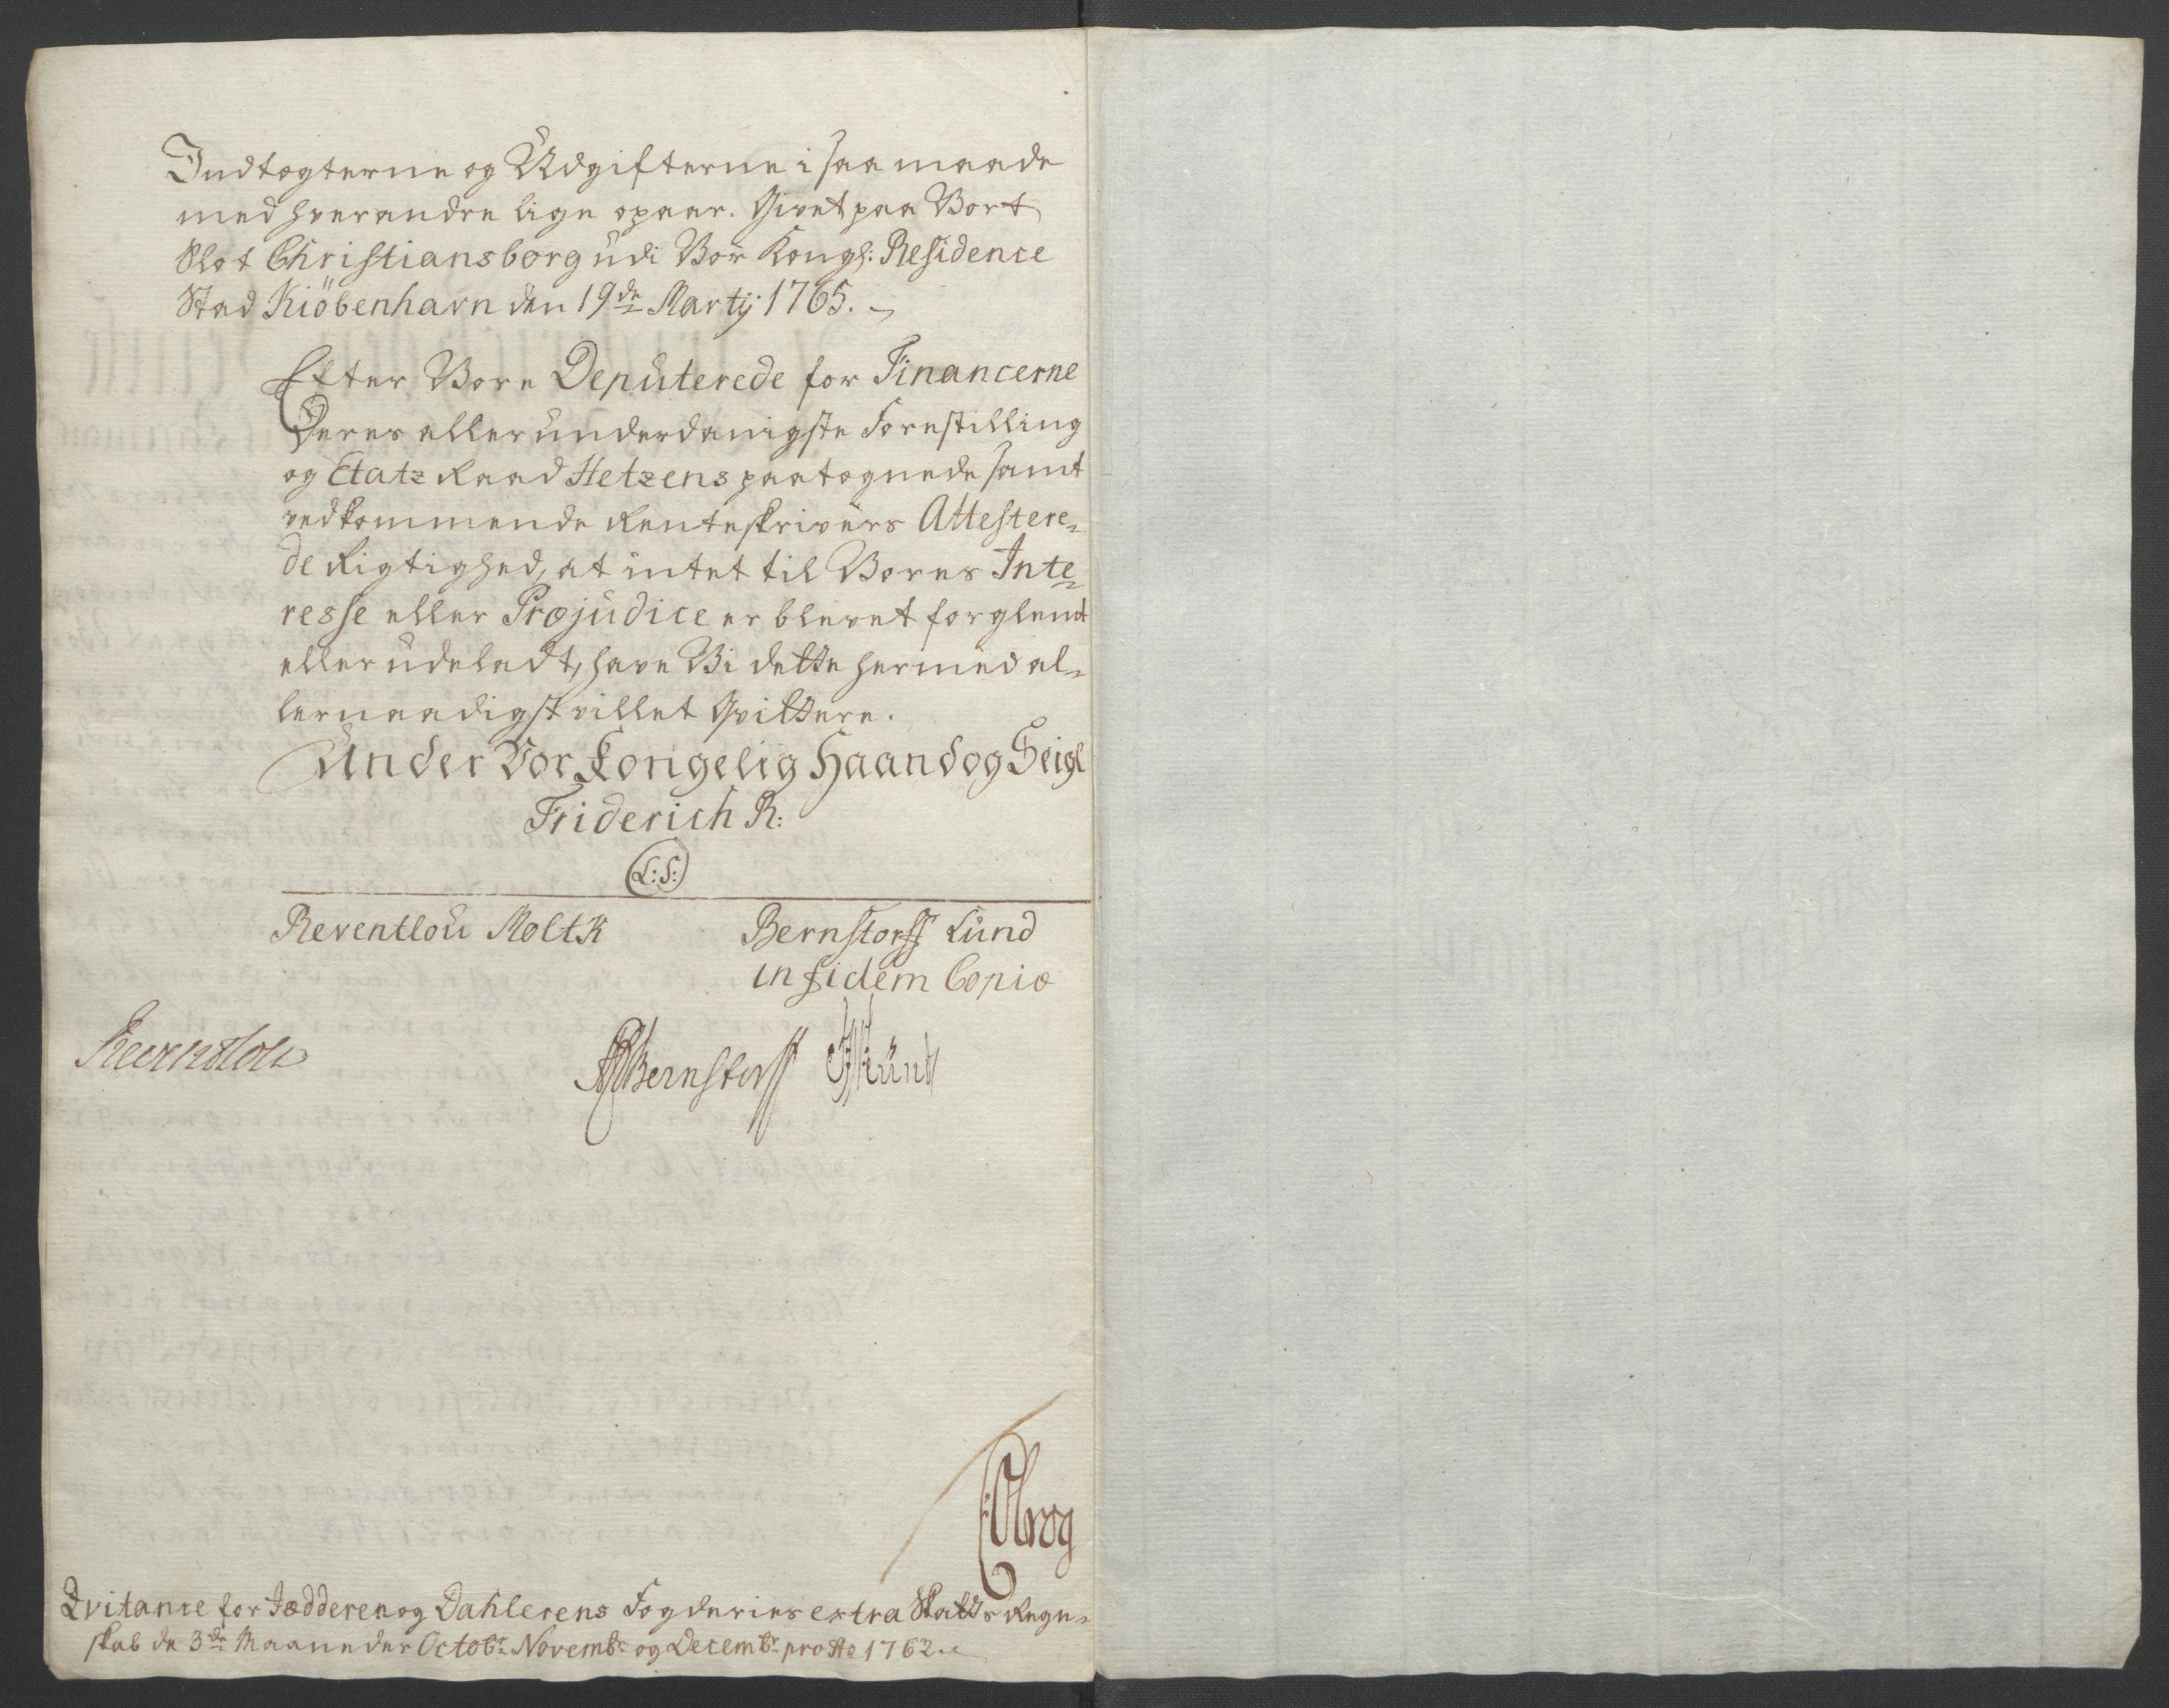 Indtægterne og Udgifterne i saa maade
med hverandre lige opgaar. Givet paa Vort
Slot Christiansborg udi Vor Kongl: Residence
Stad Kiöbenhavn den 19de Martij 1765.
Efter Vore Deputerede for Financerne
Deres allerunderdanigste Forestilling
og Etatz Raad Hetzens paategnede samt
vedkommende Renteskrivers Attestere-
de Rigtighed, at intet til Vores Inte-
resse eller Præjudice er blevet forglemt
eller udeladt, have Vi dette hermed al-
lernaadigst villet Qvittere.
Under Vor Kongelig Haand og Seigl
Friderich R:
L:S:
Reventlou Moltk Bernstorff Lund
in fidem Copiæ
Reventlou Bernstorff Lund
Qvitance for Jædderen og Dahlerens Fogderies extra Skatts Regn-
skab de 3de Maaneder Octobr: Novembr: og Decembr: pro Ao 1762.